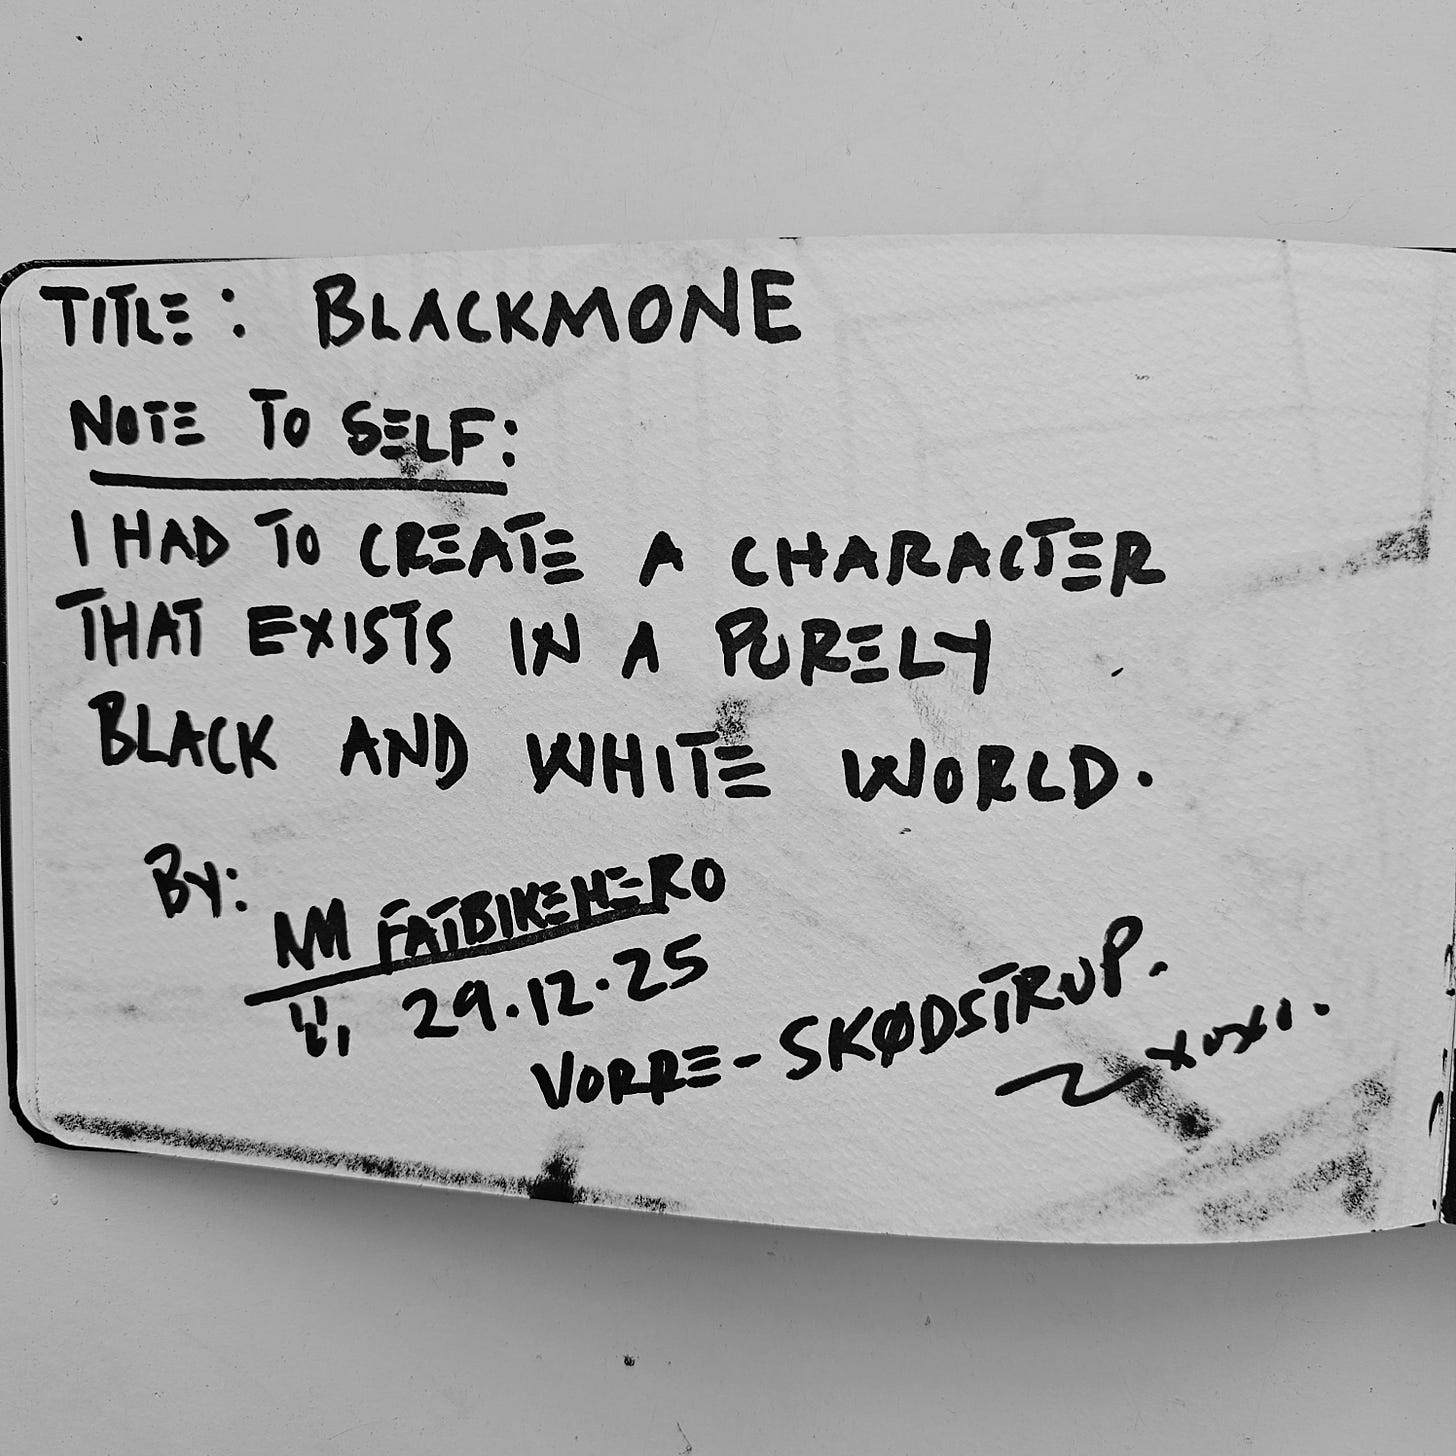 TITLE: BLACKMONE
NOTE TO SELF:
I HAD TO CREATE A CHARACTER
THAT EXISTS IN A PURELY
BLACK AND WHITE WORLD.
By:
NM FATBIKEHERO
29.12.25
VORRE-SKØDSTRUP.
xoxo.